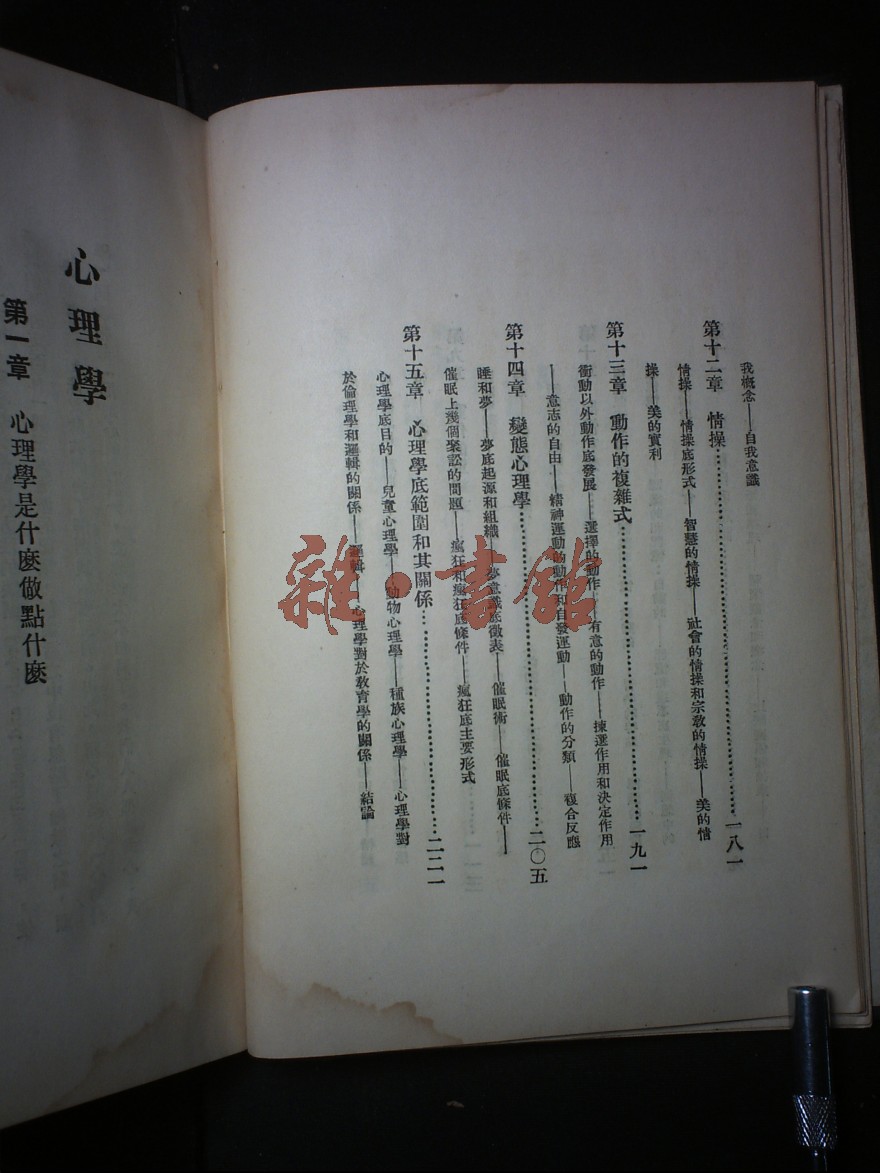 我概念——自我意識
第十二章　情操……………一八一
情操——情操底形式——智慧的情操——社會的情操和宗教的情操——美的情
操——美的實利
第十三章　動作的複雜式……………一九一
衝動以外動作底發展——選擇的動作——有意的動作——揀選作用和決定作用
——意志的自由——精神運動的動作和自發運動——動作的分類——複合反應
第十四章　變態心理學……………二〇五
睡和夢——夢底起源和組織——夢意識底徵表——催眠術——催眠底條件——
催眠上幾個聚訟的問題——瘋狂和瘋狂底條件——瘋狂底主要形式
第十五章　心理學底範圍和其關係……………二二一
心理學底目的——兒童心理學——動物心理學——種族心理學——心理學對
於倫理學和邏輯的關係——邏輯——心理學對於教育學的關係——結論
心理學
第一章　心理學是什麼做點什麼
雜·書館